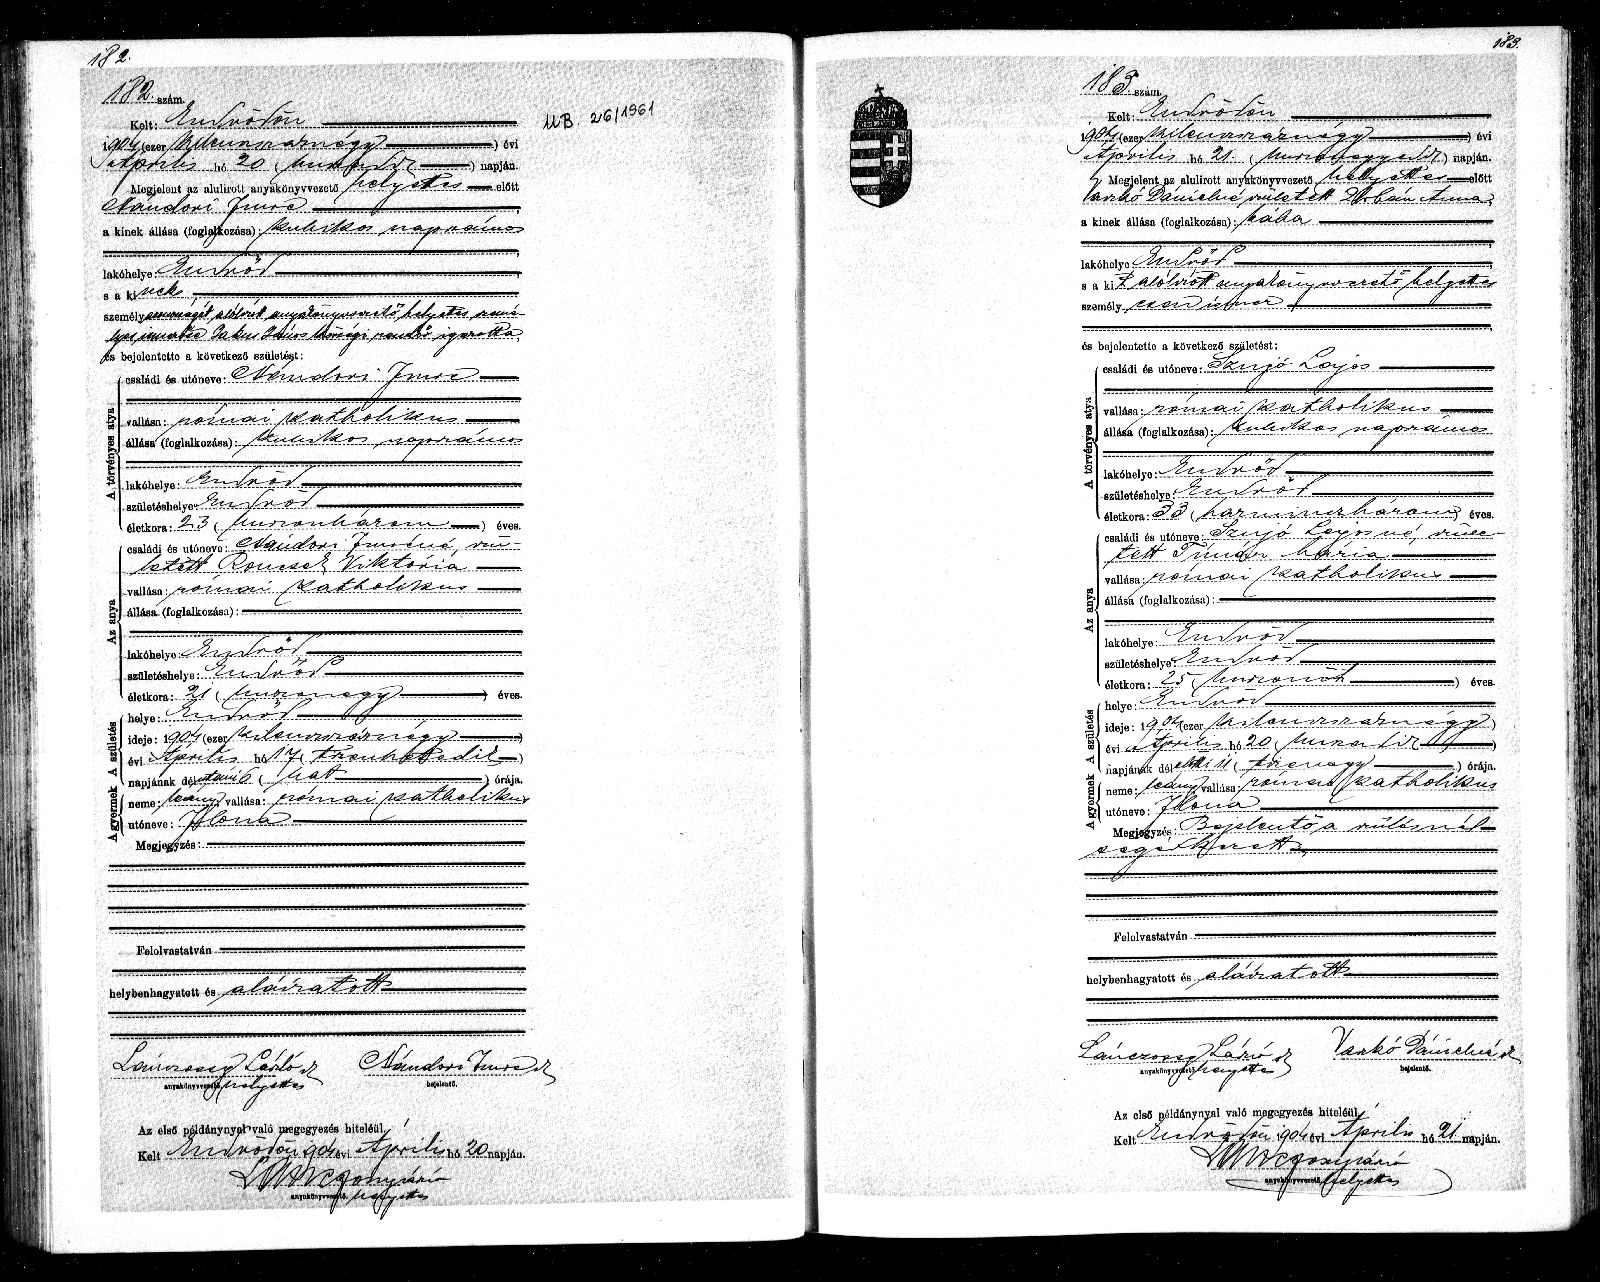 182.
182. szám.
Kelt: Endrődön
1904 (ezer kilenczszáznégy) évi
április hó 20 (huszadik) napján.
Megjelent az alulirott anyakönyvvezető helyettes előtt
Nándori Imre
a kinek állása (foglalkozása): kubikos napszámos
lakóhelye Endrőd
s a ki nek
személyazonosságát alólirott anyakönyvvezető helyettes szemé-
lyes ismerőse János községi rendőr igazolta,
és bejelentette a következő születést:
A törvényes atya
családi és utóneve: Nándori Imre
vallása: római katholikus
állása (foglalkozása): kubikos napszámos
lakóhelye: Endrőd
születéshelye: Endrőd
életkora: 23 (huszonhárom) éves.
Az anya
családi és utóneve: Nándori Imréné, szü-
letett Viktória
vallása: római katholikus
állása (foglalkozása):
lakóhelye: Endrőd
születéshelye: Endrőd
életkora: 21 (huszonegy) éves.
A születés
helye: Endrőd
ideje: 1904 (ezer kilenczszáznégy)
évi április hó 17 (tizenhetedik)
napjának délutáni 6 (hat) órája.
A gyermek
neme: leány; vallása: római katholikus
utóneve: Ilona
Megjegyzés:
Felolvastatván
helybenhagyatott és aláiratott
Lánczossy László sk
anyakönyvvezető helyettes
Nándori Imre sk
bejelentő.
Az első példánynyal való megegyezés hiteléül.
Kelt Endrődön 1904 évi április hó 20 napján.
anyakönyvvezető, helyettes
UB. 26/1961
183.
183. szám.
Kelt: Endrődön
1904 (ezer kilenczszáznégy) évi
április hó 21 (huszonegyedik) napján.
Megjelent az alulirott anyakönyvvezető helyettes előtt
Vaskó Dánielné született Urbán Anna
a kinek állása (foglalkozása): bába
lakóhelye Endrőd
s a kit alólirott anyakönyvvezető helyettes
személyesen ismer
és bejelentette a következő születést:
A törvényes atya
családi és utóneve: Szujó Lajos
vallása: római katholikus
állása (foglalkozása): kubikos napszámos
lakóhelye: Endrőd
születéshelye: Endrőd
életkora: 33 (harminczhárom) éves.
Az anya
családi és utóneve: Szujó Lajosné, szüle-
tett Tímár Mária
vallása: római katholikus
állása (foglalkozása):
lakóhelye: Endrőd
születéshelye: Endrőd
életkora: 25 (huszonöt) éves.
A születés
helye: Endrőd
ideje: 1904 (ezer kilenczszáznégy)
évi április hó 20 (huszadik)
napjának délelőtti 11 (tizenegy) órája.
A gyermek
neme: leány; vallása: római katholikus
utóneve: Ilona
Megjegyzés: Bejelentő a szülésnél
segédkezett
Felolvastatván
helybenhagyatott és aláiratott
Lánczossy László sk
anyakönyvvezető helyettes
Vaskó Dánielné sk
bejelentő.
Az első példánynyal való megegyezés hiteléül.
Kelt Endrődön 1904 évi április hó 21 napján.
anyakönyvvezető, helyettes